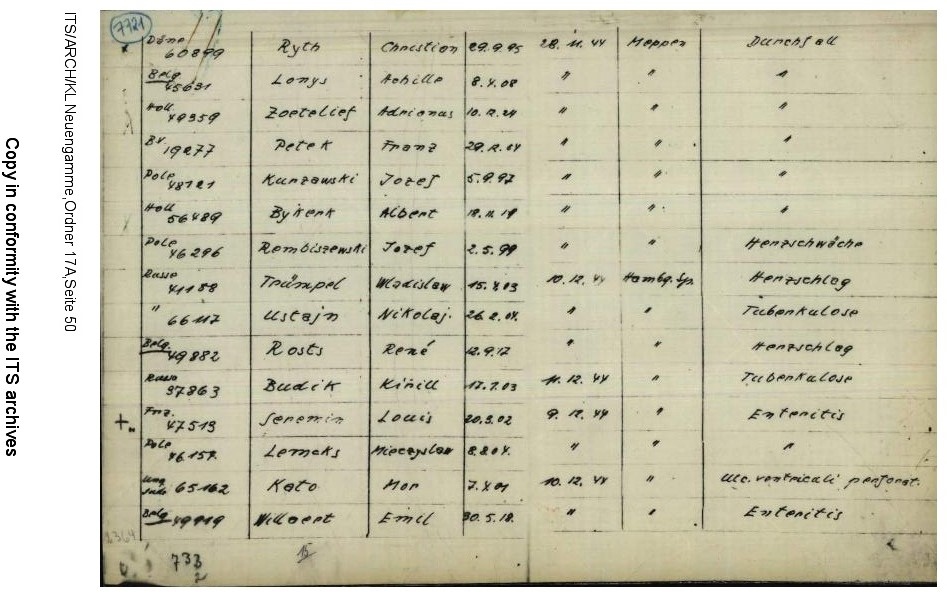 Copy in conformity with the ITS archives
ITS/ARCH/KL Neuengamme, Ordner 17A, Seite 50
7721
Däne 60899 Ryth Christian 29.9.95 28.11.44 Meppen Durchfall
Belg. 45631 Lonys Achille 8.4.08 " " "
Holl. 49359 Zoetelief Adrianus 10.12.24 " " "
BV. 19277 Petek Franz 29.12.04 " " "
Pole 48721 Kurzawski Jozef 5.9.97 " " "
Holl. 56489 Bykerk Albert 18.11.19 " " "
Pole 46296 Rembiszewski Jozef 2.5.99 " " Herzschwäche
Russe 41188 Trümpel Wladislaw 15.4.03 10.12.44 Hambg. Sp. Herzschlag
" 66117 Ustajn Nikolaj. 26.2.04. " " Tuberkulose
Belg. 49882 Rosts René 12.9.17 " " Herzschlag
Russe 37863 Budik Kirill 17.7.03 11.12.44 " Tuberkulose
Frz. 47513 Seremin Louis 20.3.02 9.12.44 " Enteritis
Pole 46157. Lemaks Mieczyslaw 8.8.04. " " "
Ung. Jude 65162 Kato Mor 7.4.01 10.12.44 " Ulc. ventriculi perforat.
Belg. 49919 Willaert Emil 30.5.18. " " Enteritis
733
2
15